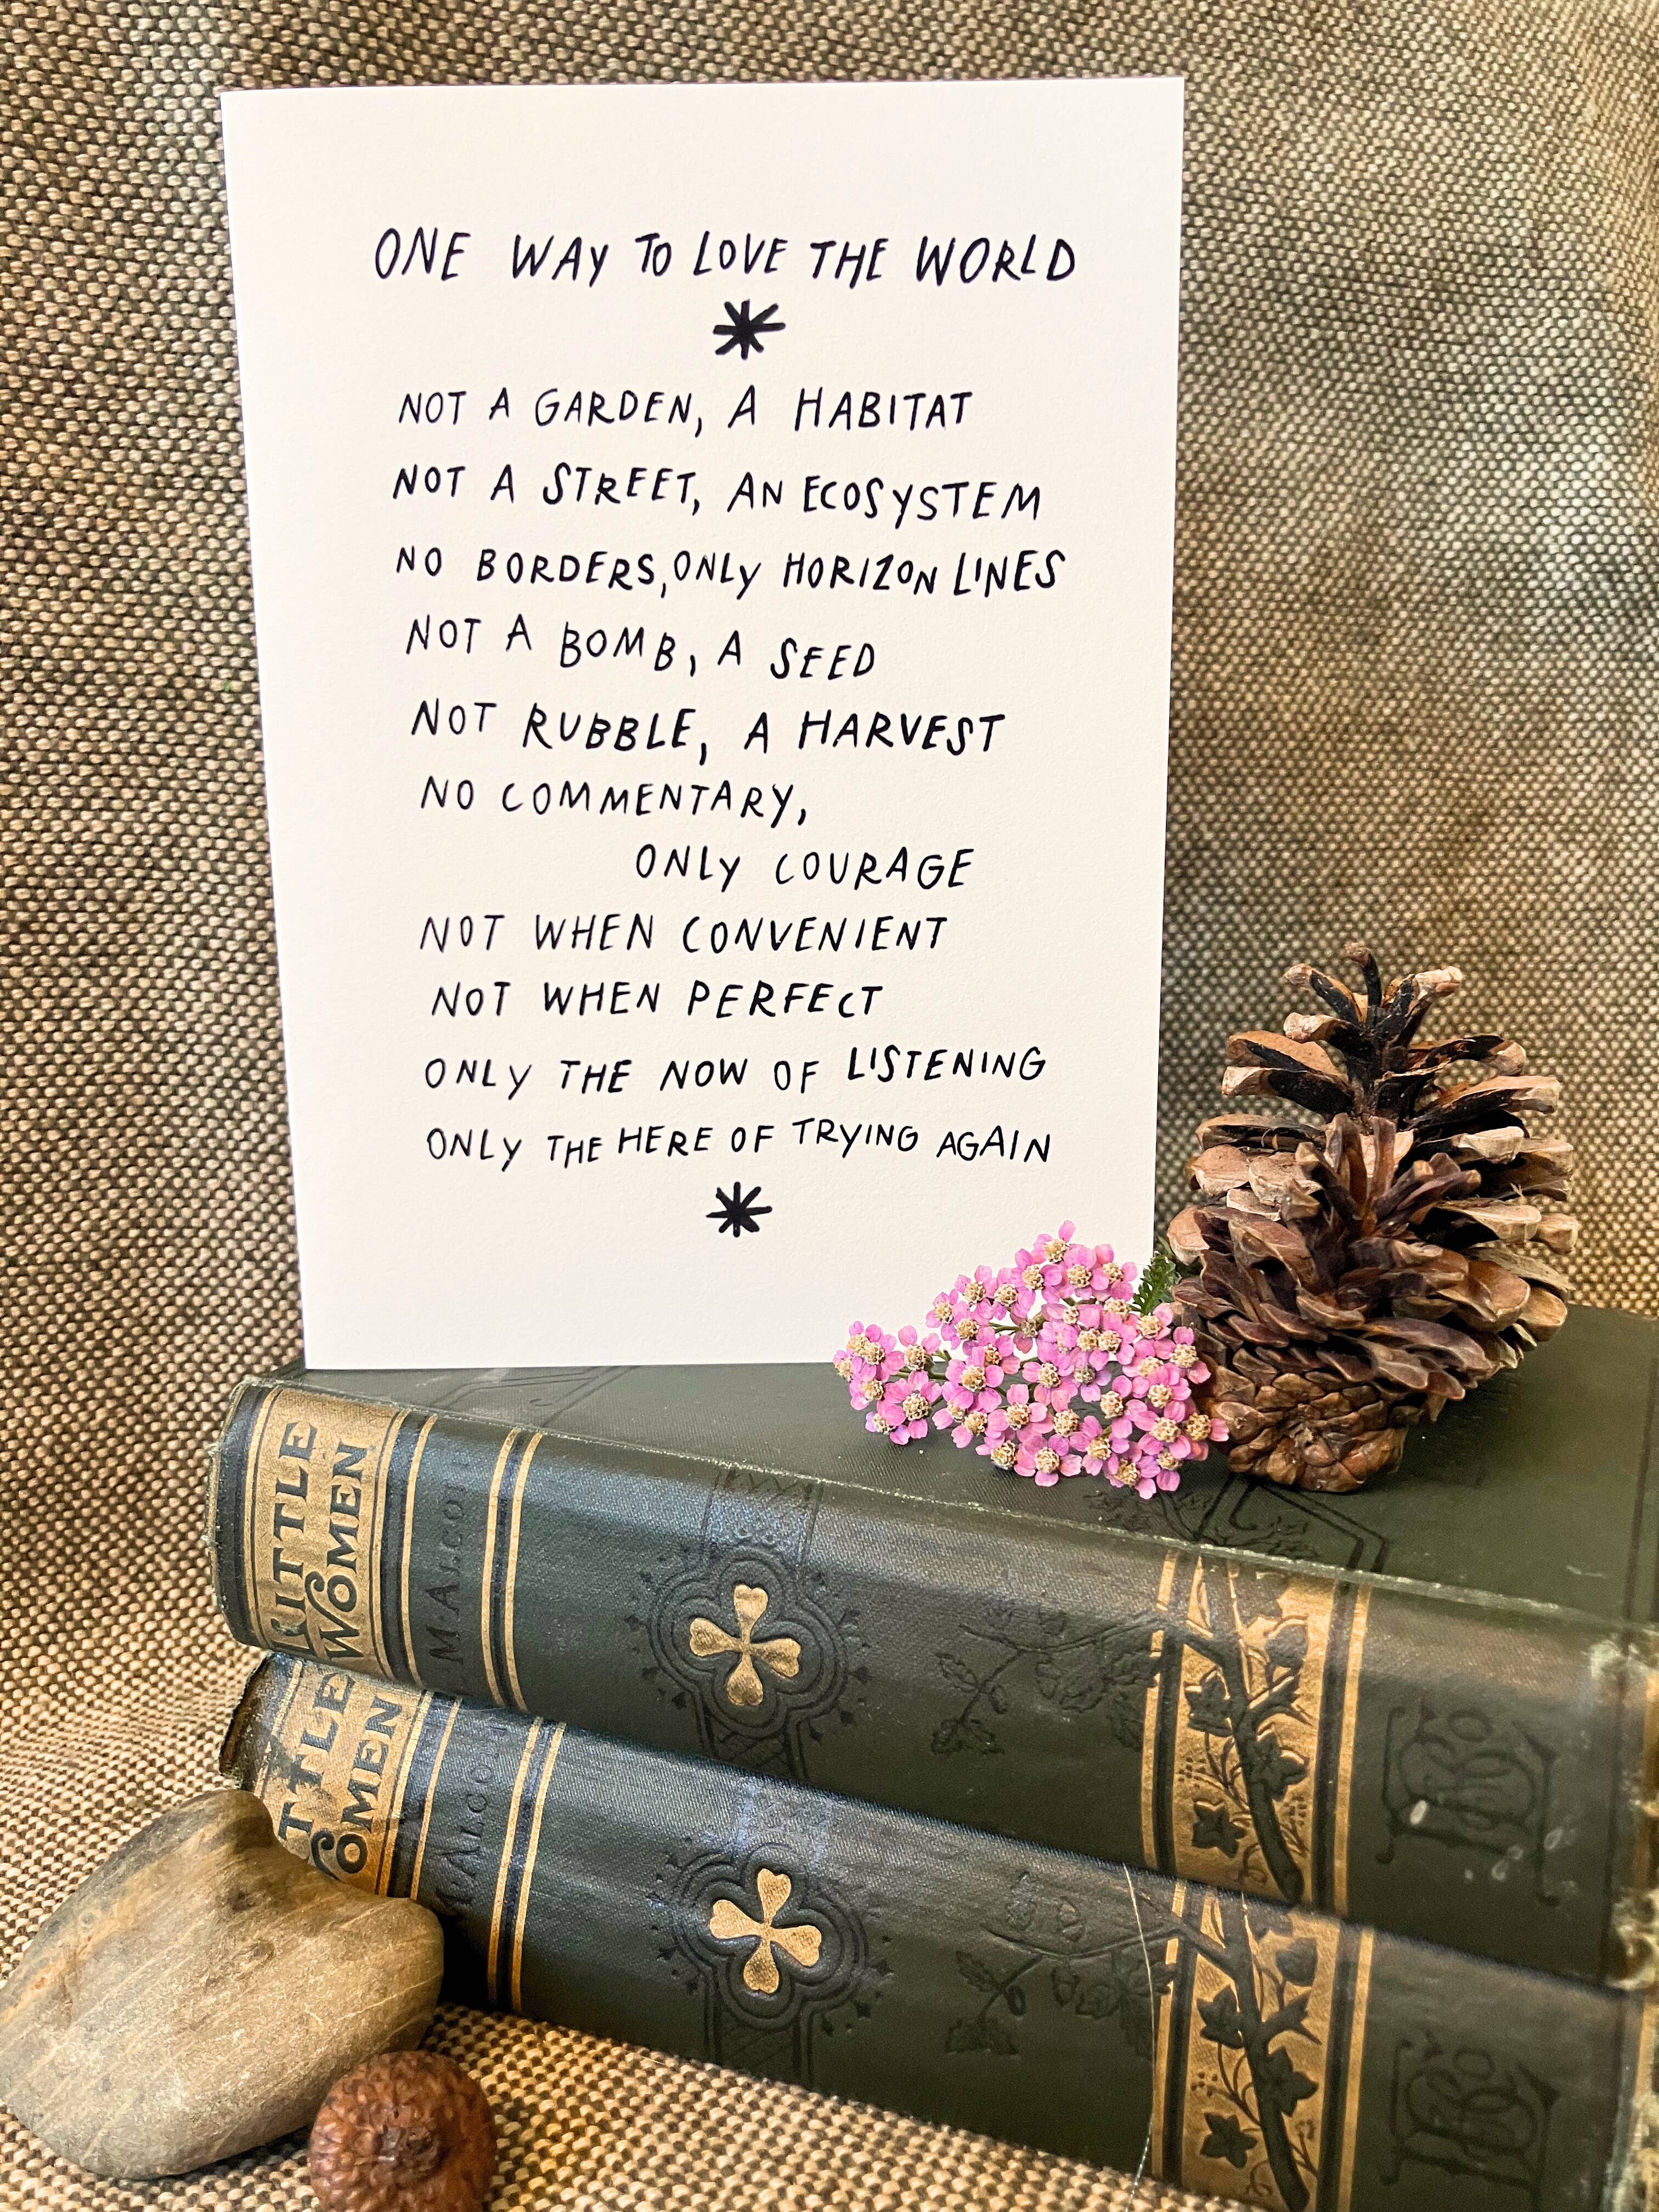 ONE WAY TO LOVE THE WORLD
NOT A GARDEN, A HABITAT
NOT A STREET, AN ECOSYSTEM
NO BORDERS, ONLY HORIZON LINES
NOT A BOMB, A SEED
NOT RUBBLE, A HARVEST
NO COMMENTARY,
ONLY COURAGE
NOT WHEN CONVENIENT
NOT WHEN PERFECT
ONLY THE NOW OF LISTENING
ONLY THE HERE OF TRYING AGAIN
LITTLE
WOMEN
M. ALCOTT
TTLE
WOMEN
M. ALCOTT